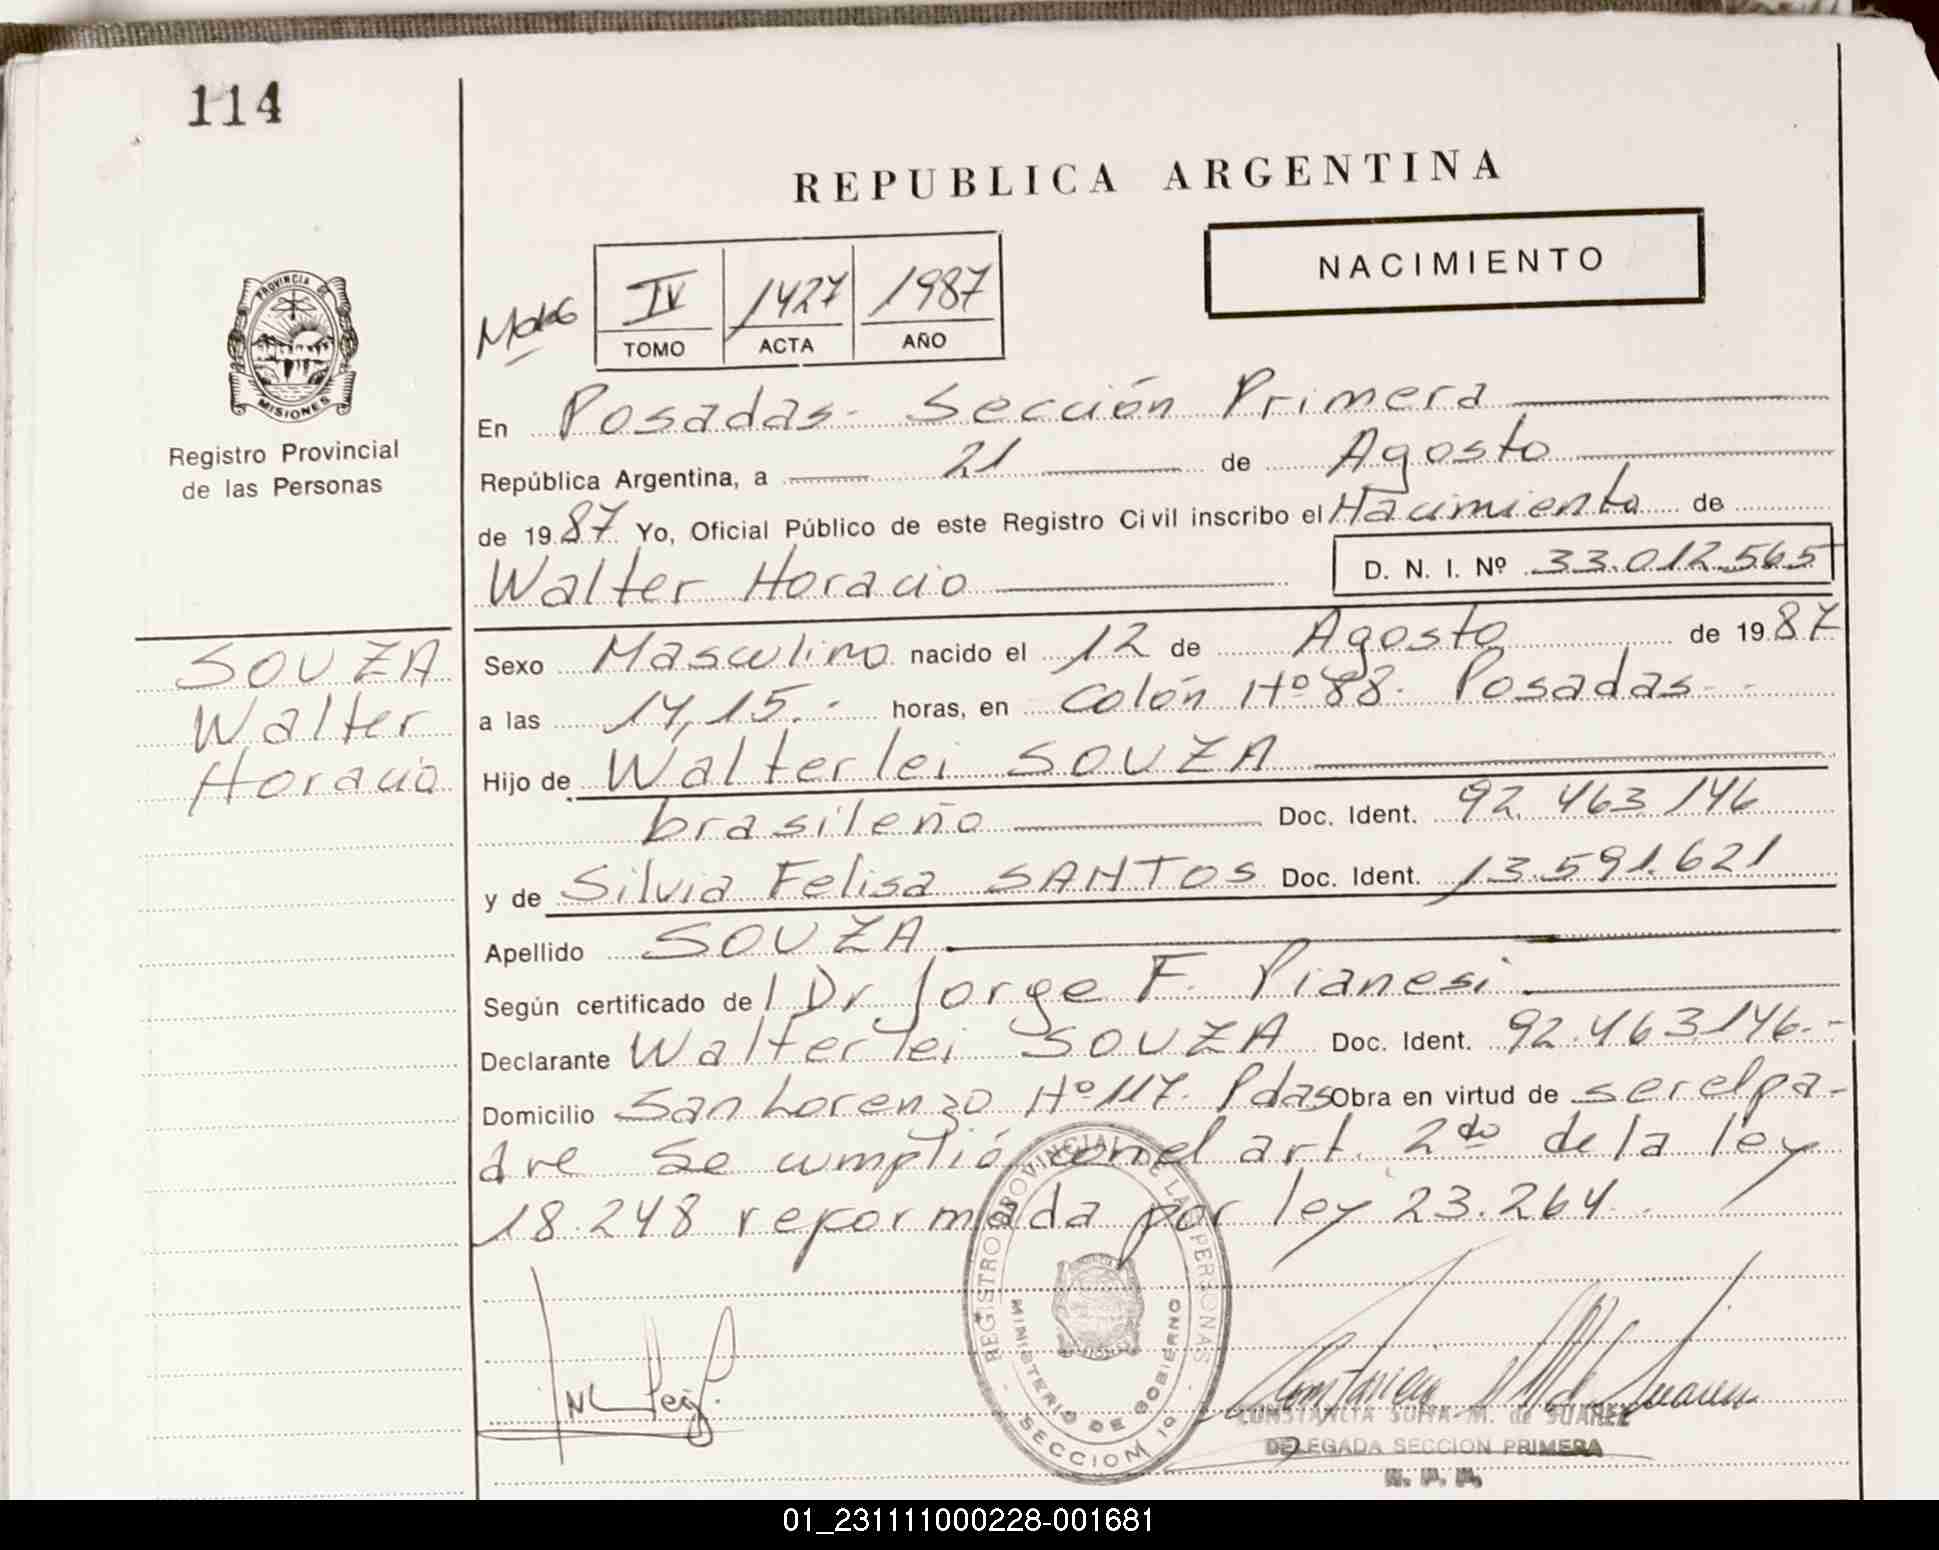 114
REPUBLICA ARGENTINA
NACIMIENTO
IV 1427 1987
TOMO ACTA AÑO
PROVINCIA DE
MISIONES
Registro Provincial
de las Personas
En Posadas- Sección Primera
República Argentina, a 21 de Agosto
de 1987 Yo, Oficial Público de este Registro Civil inscribo el Nacimiento de
Walter Horacio D. N. I. Nº 33.012.565
SOUZA
Walter
Horacio
Sexo Masculino nacido el 12 de Agosto de 1987
a las 14,15.- horas, en Colón Nº 88. Posadas--
Hijo de Walterlei SOUZA
brasileño Doc. Ident. 92.463.146
y de Silvia Felisa SANTOS Doc. Ident. 13.591.621
Apellido SOUZA
Según certificado de Dr Jorge F. Pianesi
Declarante Walterlei SOUZA Doc. Ident. 92.463.146.-
Domicilio San Lorenzo Nº 117. Pdas Obra en virtud de ser el pa-
dre Se cumplió con el art. 2do de la ley
18.248 reformada por ley 23.264.
REGISTRO PROVINCIAL DE LAS PERSONAS
MINISTERIO DE GOBIERNO
SECCION 1º
CONSTANCIA SOFIA M. de SUAREZ
DELEGADA SECCION PRIMERA
R. P. P.
01_231111000228-001681